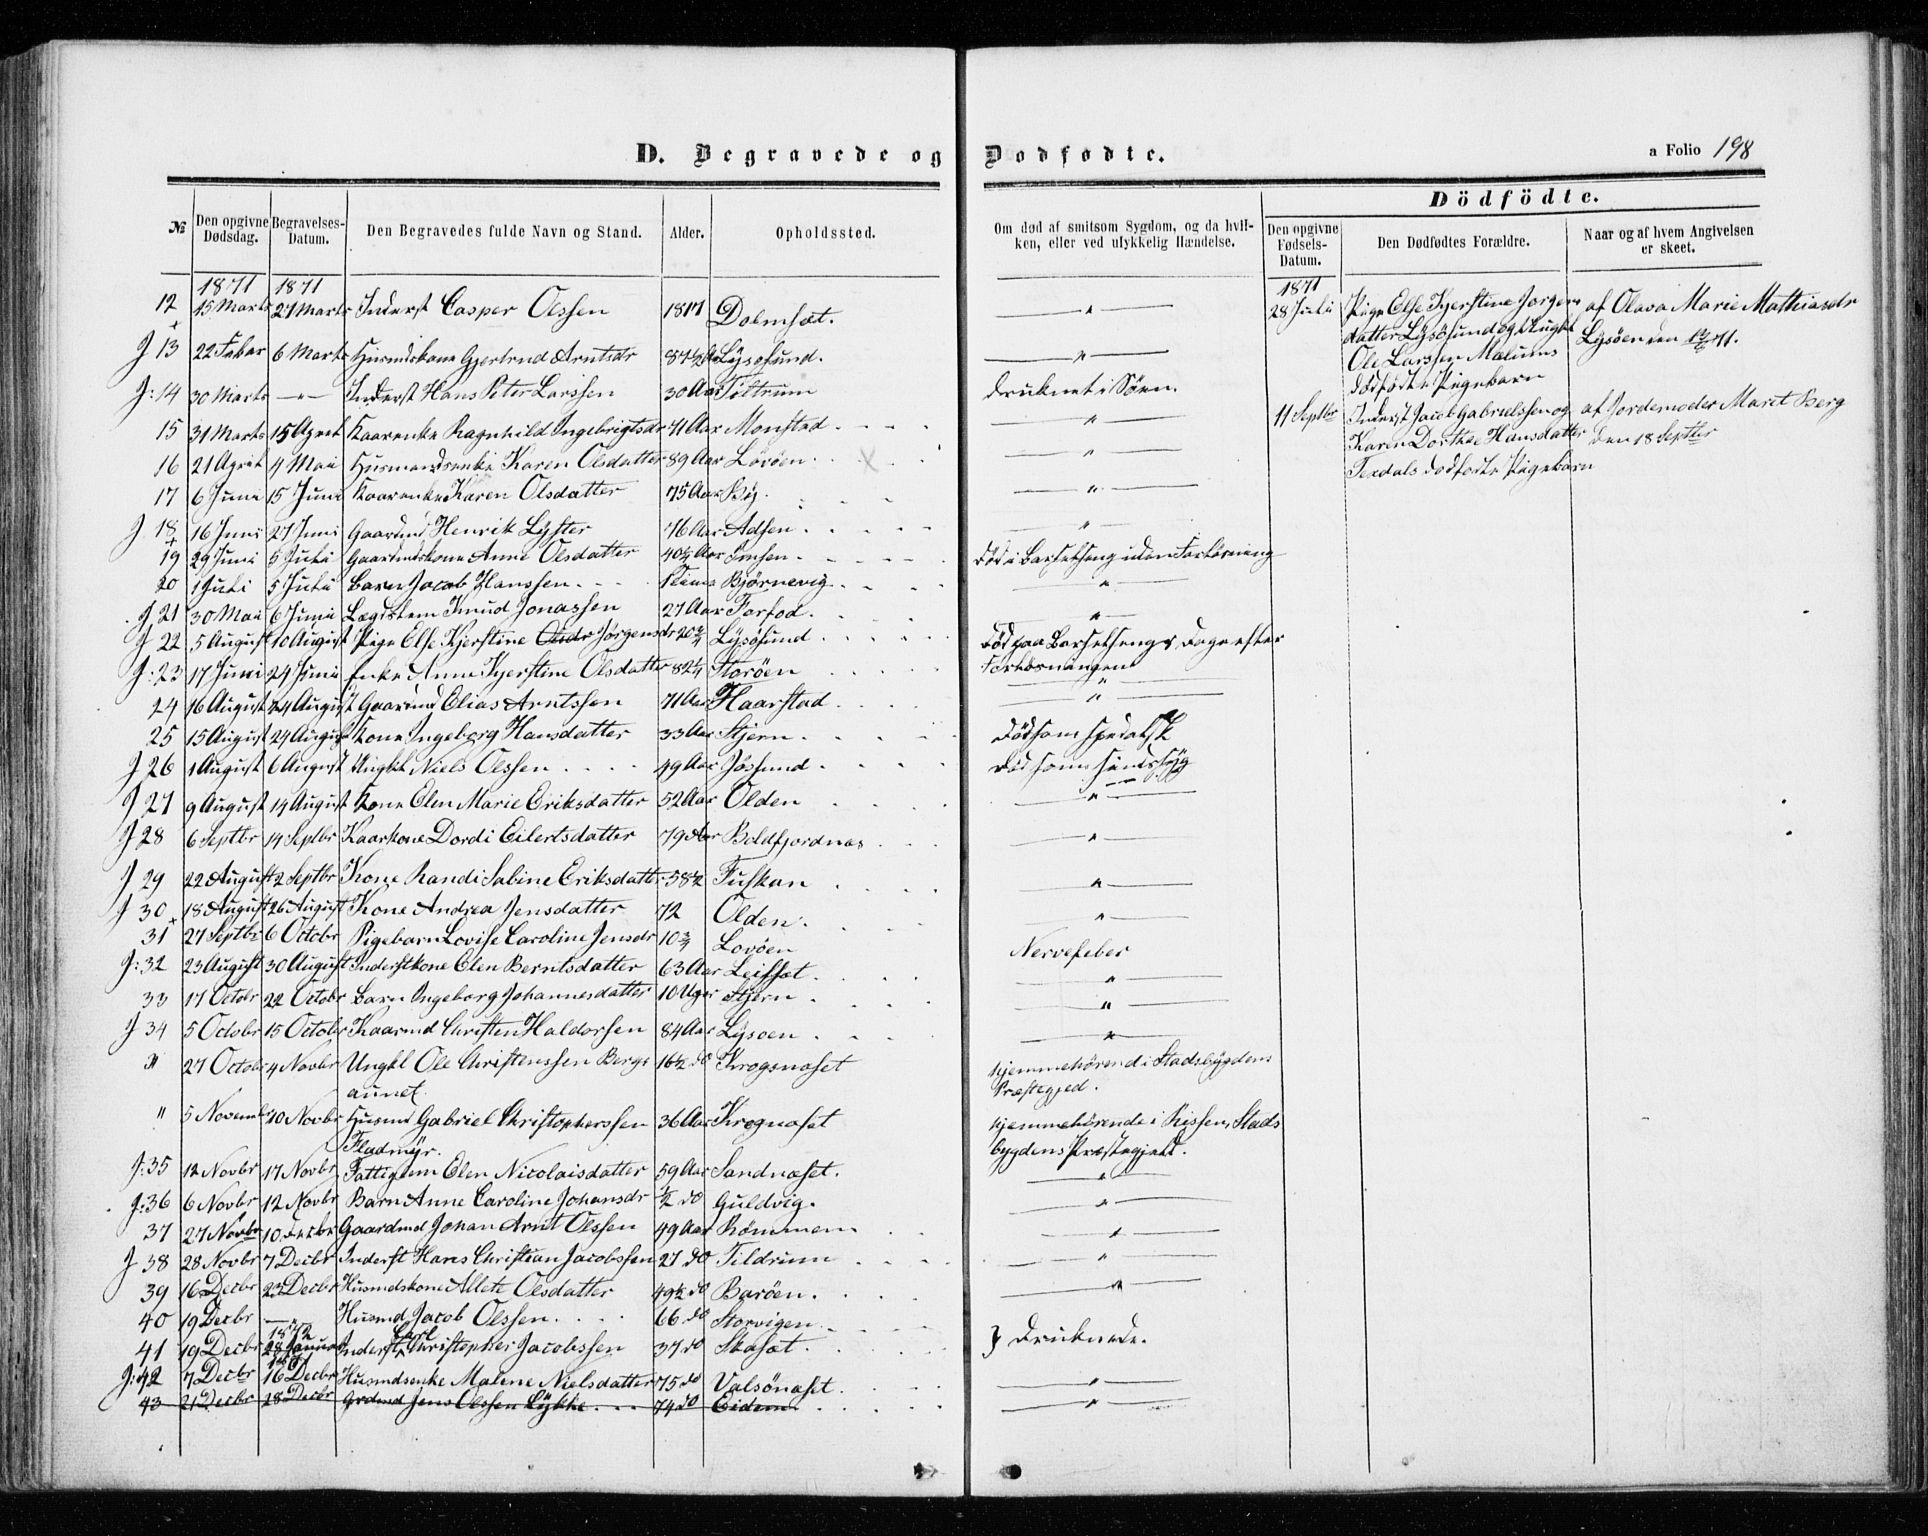 D. Begravede og Dodfødte.
a Folio 198
Dödfödte.
№
Den opgivne Dødsdag.
Begravelses-Datum.
Den Begravedes fulde Navn og Stand.
Alder.
Opholdssted.
Om død af smitsom Sygdom, og da hvilken, eller ved ulykkelig Hændelse.
Den opgivne Fødsels-Datum.
Den Dødfødtes Forældre.
Naar og af hvem Angivelsen er skeet.
1871 1871 1871
12 15 Marts 27 Marts Inderst Casper Olssen 1817 Dolmsæt. "
J 13 22 Febar 6 Marts Husmdskone Gjertrud Arntsdr Lysøsund. "
J: 14 30 Marts —"— Inderst Hans Peter Larssen 30 Aar Titrum druknet i Søen.
15 31 Marts 15 April Kaarenke Ragnhild Ingebrigtsdr 71 Aar Monstad "
16 21 April 4 Mai Husmandsenke Karen Olsdatter 89 Aar Lovöen "
17 6 Juni 15 Juni Kaarenke Karen Olsdatter 75 Aar By "
J 18 16 Juni 27 Juni Gaardmd Henrik Lyster 76 Aar Adsen "
19 29 Juni 5 Juli Gaardmdskone Anne Olsdatter 40¼ Aar Imsen Död i Barselseng uden Forlösning
20 1 Juli 5 Juli Barn Jacob Hanssen 1 Time Bjørnevig "
J 21 30 Mai 6 Juni Lægdslem Knud Jonassen 27 Aar Forfod "
J 22 5 August 10 August Pige Else Kjerstine Olsdr Jørgensdr 20¾ Lysösund Död paa Barselseng 8 Dage efter
Forlösningen
J: 23 17 Juni 24 Juni Enke Anne Kjerstine Olsdatter 82¼ Storöen "
24 16 August 24 August Gaardmd Elias Arntssen 71 Aar Haarstad "
25 15 August 24 August Kone Ingeborg Hansdatter 33 Aar Stjern Död som spedalsk
J 26 1 August 6 August Ungkl Niels Olssen 49 Aar Jøssund Död som sindssyg
J 27 9 August 14 August Kone Elen Marie Eriksdatter 52 Aar Olden "
J 28 6 Septbr 14 Septbr Kaarkone Dordi Eilertsdatter 79 Aar Boldfjordnæs "
J 29 22 August 2 Septbr Kone Randi Sabine Eriksdatter 58½ Fuskan "
J 30 18 August 26 August Kone Andrea Jensdatter 72 Olden "
31 27 Septbr 6 Octobr Pigebarn Lovise Caroline Jensdr 10¾ Lovöen Nervefeber
J: 32 23 August 30 August Inderstkone Elen Berntsdatter 63 Aar Leifsæt "
33 17 Octobr 22 Octobr Barn Ingeborg Johannesdatter 10 Uger Stjern "
J 34 5 Octobr 15 Octobr Kaarmd Christen Haldorsen 84 Aar Lysoen "
" 27 Octobr 4 Novbr Ungkl Ole Christenssen Bergs 16½ do Krogsnæset Hjemmehörende i Stadsbygdens
aunet. Præstegjed.
" 5 Novemb 10 Novbr Husmd Gabriel Christopherssen 36 Aar Krognæset Hjemmehörende i Rissen, Stads
Fladmyr. bygdens Præstegjeld.
J: 35 12 Novbr 17 Novbr Fattiglem Elen Nicolaisdatter 59 Aar Sandnæset. "
J: 36 6 Novbr 12 Novbr Barn Anne Caroline Johansdr ½ do Guldvig. "
37 27 Novbr 10 Decbr Gaardmd Johan Arnt Olssen 49 Aar Römmem "
J 38 28 Novbr 7 Decbr Inderst Hans Christian Jacobssen 27 do Tildrum "
39 16 Decbr 23 Decbr Husmdskone Allete Olsdatter 49½ do Baröen. "
40 19 Decbr —"— Husmd Jacob Olssen 66 do Storvigen
1872
41 19 Decbr 28 Januar Inderst Carl Christopher Jacobssen 37 do Skasæt. } Druknede.
1871
J: 42 7 Decbr 16 Decbr Husmdsenke Malene Nielsdatter 75 do Valsönæset "
43 21 Decbr 28 Decbr Grdmd Jens Olssen Lykke 74 do Eidem "
28 Juli Pige Else Kjerstine Jørgens
datter Lysösund og Ungkl
Ole Larssen Mælums
dödfödte Pigebarn
af Olava Marie Mathiasdr
Lysöen den 71.
11 Septbr Inderst Jacob Gabrielssen og
Karen Dorthea Hansdatter
Texdals dödfödte Pigebarn
af Jordemoder Marit Berg
den 18 Septbr